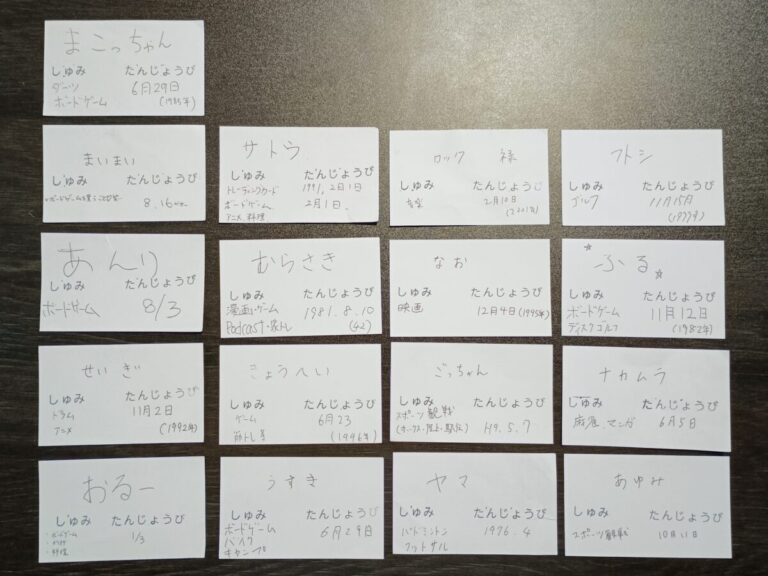 まこっちゃん
しゅみ たんじょうび
ダーツ 6月29日
ボードゲーム (1985年)
まいまい
しゅみ たんじょうび
8.16
サトウ
しゅみ たんじょうび
トレーディングカード 1991,2月1日
ボードゲーム 2月1日.
アニメ、料理
ロック 緑
しゅみ たんじょうび
音楽 2月10日
フトシ
しゅみ たんじょうび
ゴルフ 11月15日
(1977年)
あんり
しゅみ たんじょうび
ボードゲーム 8/3
むらさき
しゅみ たんじょうび
漫画・ゲーム 1981.8.10
Podcast・筋トレ (42)
なお
しゅみ たんじょうび
映画 12月4日(1995年)
☆ふる☆
しゅみ たんじょうび
ボードゲーム 11月12日
ディスクゴルフ (1982年)
せいぎ
しゅみ たんじょうび
ドラム 11月2日
アニメ (1992年)
きょうへい
しゅみ たんじょうび
ゲーム 6月23
筋トレ等 (1996年)
ごっちゃん
しゅみ たんじょうび
スポーツ観戦
H9.5.7
ナカムラ
しゅみ たんじょうび
麻雀、マンガ 6月5日
おるー
しゅみ たんじょうび
・ボードゲーム 1/3
・料理
うすき
しゅみ たんじょうび
ボードゲーム 6月29日
バイク
キャンプ
ヤマ
しゅみ たんじょうび
バドミントン 1976.4
フットサル
あゆみ
しゅみ たんじょうび
スポーツ観戦 10月11日